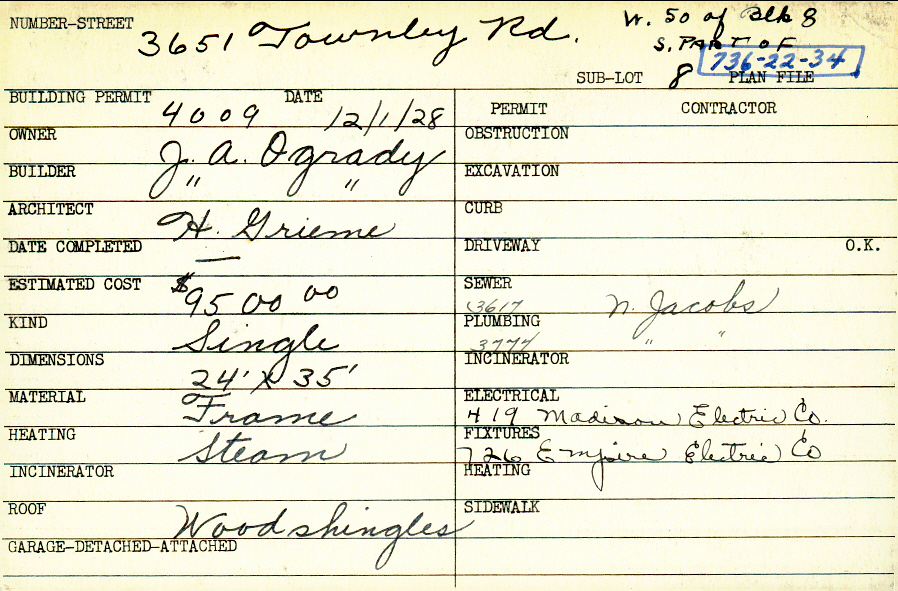 NUMBER-STREET 3651 Townley Rd. W. 50 of Blk 8
S. PART OF
736-22-34
SUB-LOT 8 PLAN FILE
BUILDING PERMIT 4009 DATE 12/1/28
OWNER J. A. Ogrady
BUILDER " "
ARCHITECT H. Grieme
DATE COMPLETED —
ESTIMATED COST $9500 00
KIND Single
DIMENSIONS 24' X 35'
MATERIAL Frame
HEATING Steam
INCINERATOR
ROOF Wood shingles
GARAGE-DETACHED-ATTACHED
PERMIT CONTRACTOR
OBSTRUCTION
EXCAVATION
CURB
DRIVEWAY O.K.
SEWER 3617 N. Jacobs
PLUMBING 3774 " "
INCINERATOR
ELECTRICAL
419 Madison Electric Co.
FIXTURES
726 Empire Electric Co
HEATING
SIDEWALK